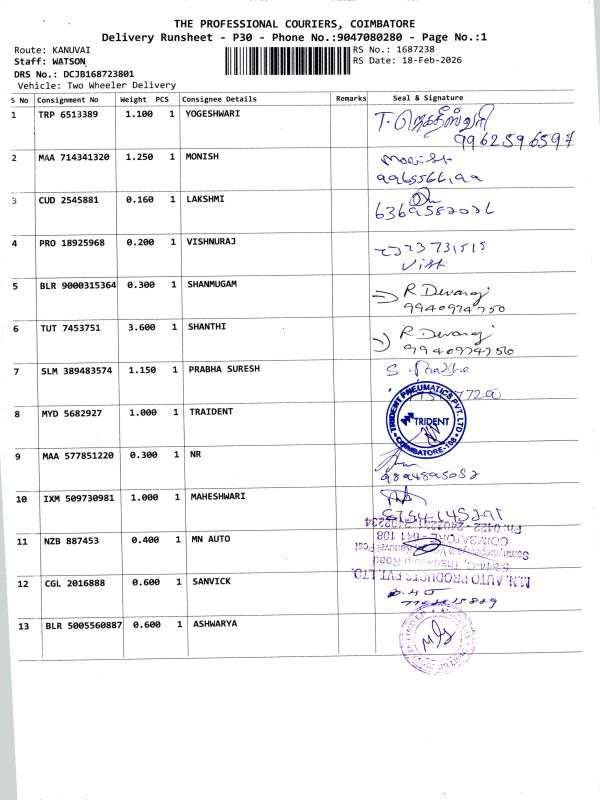 THE PROFESSIONAL COURIERS, COIMBATORE
Delivery Runsheet - P30 - Phone No.:9047080280 - Page No.:1
Route: KANUVAI
Staff: WATSON
DRS No.: DCJB168723801
Vehicle: Two Wheeler Delivery
RS No.: 1687238
RS Date: 18-Feb-2026
S No Consignment No Weight PCS Consignee Details Remarks Seal & Signature
1 TRP 6513389 1.100 1 YOGESHWARI
9962596597
2 MAA 714341320 1.250 1 MONISH Monish
3 CUD 2545881 0.160 1 LAKSHMI
6369582026
4 PRO 18925968 0.200 1 VISHNURAJ
5 BLR 9000315364 0.300 1 SHANMUGAM R Devaraj
9940974750
6 TUT 7453751 3.600 1 SHANTHI R Devaraj
9940974750
7 SLM 389483574 1.150 1 PRABHA SURESH
8 MYD 5682927 1.000 1 TRAIDENT
TRIDENT PNEUMATICS PVT. LTD.
TRIDENT
COIMBATORE-108
9 MAA 577851220 0.300 1 NR
9894895082
10 IXM 509730981 1.000 1 MAHESHWARI
11 NZB 887453 0.400 1 MN AUTO
M.N. AUTO PRODUCTS PVT. LTD.
Somayampalayam Kanuvai Post
COIMBATORE - 641 108
12 CGL 2016888 0.600 1 SANVICK
13 BLR 5005560887 0.600 1 ASHWARYA